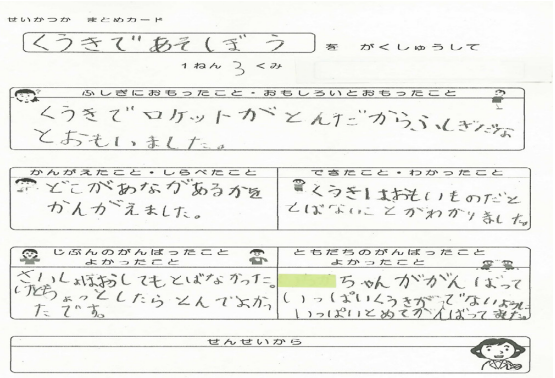 せいかつか まとめカード
くうきで あそしぼう を がくしゅうして
1ねん 3 くみ
ふしぎにおもったこと・おもしろいとおもったこと
くうきでロケットがとんだから、ふしぎだな
とおもいました。
かんがえたこと・しらべたこと
どこがあながあるかを
かんがえました。
できたこと・わかったこと
くうきはおもいものだと
とばないことがわかりました。
じぶんのがんばったこと
よかったこと
さいしょはおしてもとばなかった。
けどちょっとしたらとんでよかっ
たです。
ともだちのがんばったこと
よかったこと
ちゃんががんばって
いっぱいくうきがでないように
いっぱいとめてがんばってました。
せんせいから